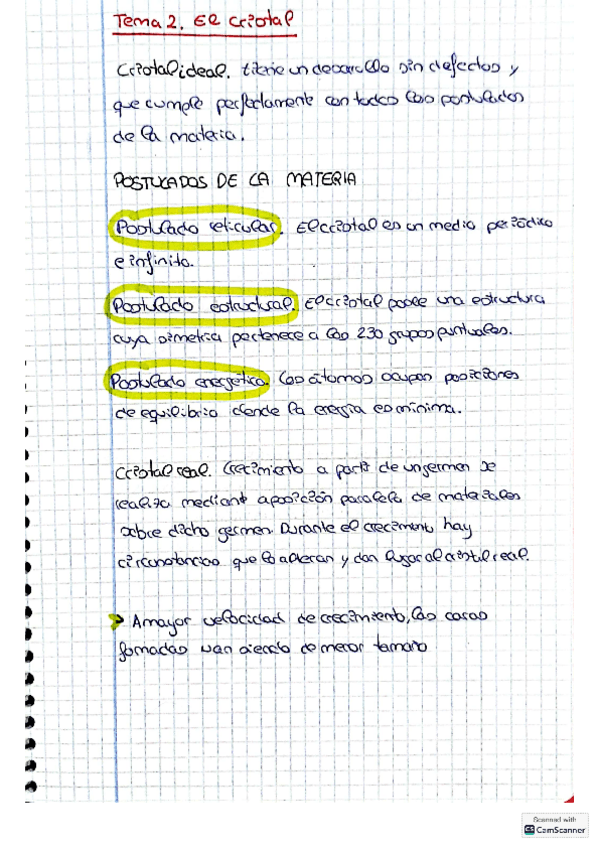 Tema 2. El Cristal
Cristal ideal. tiene un desarrollo sin defectos y
que cumple perfectamente con todos los postulados
de la materia.
POSTULADOS DE LA MATERIA
Postulado reticular. El cristal es un medio periódico
e infinito.
Postulado estructural. El cristal posee una estructura
cuya simetría pertenece a los 230 grupos puntuales.
Postulado energético. Los átomos ocupan posiciones
de equilibrio donde la energía es mínima.
Cristal real. Crecimiento a partir de un germen se
realiza mediante aposición paralela de materiales
sobre dicho germen. Durante el crecimiento hay
circunstancias que lo alteran y dan lugar al cristal real.
➤ A mayor velocidad de crecimiento, las caras
formadas van siendo de menor tamaño
Scanned with
CS CamScanner